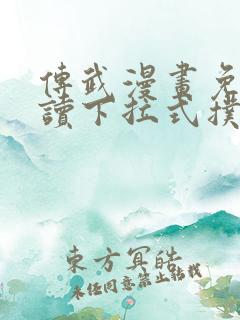 傳武漫畫免
讀下拉式撲
東方冥皓
未經同意禁止轉載